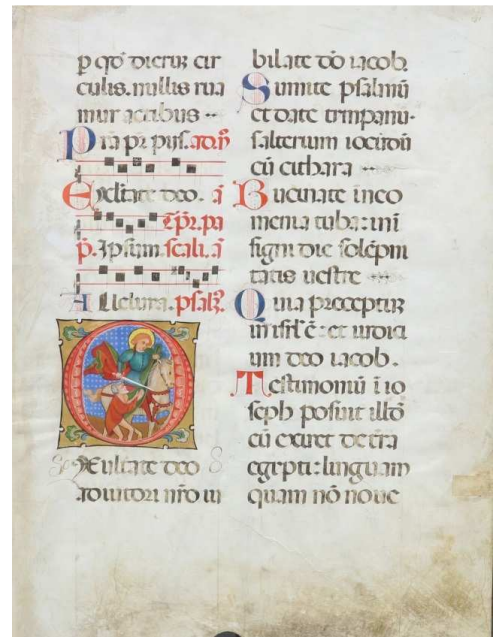 p qd dicrir cir
culis. nullis rua
mur actibus
Pra pr pijs. ad. ñ
Exultate deo. ã
Tpr. pa
p. Ipsum scali. ã
Alleluya. psal3.
Exultate deo
adiutori nro iu
bilate do iacob.
Sumite psalmũ
et date timpanu.
salterium iocũdũ
cũ cithara
Bucinate in eo
menia tuba: in ĩ
signi die solẽpni
tatis uestre
Quia preceptũ
in isrl ẽ: et iudici
um deo iacob.
Testimoniũ ĩ io
seph posuit illd
cũ exiret de tra
egepti: linguam
quam nõ noue